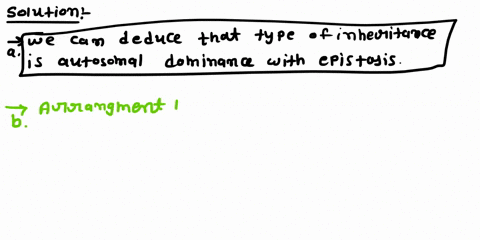 Solution:-
→ we can deduce that type of inheritance
a. is autosomal dominance with epistosis.
→ Arrangment 1
b.